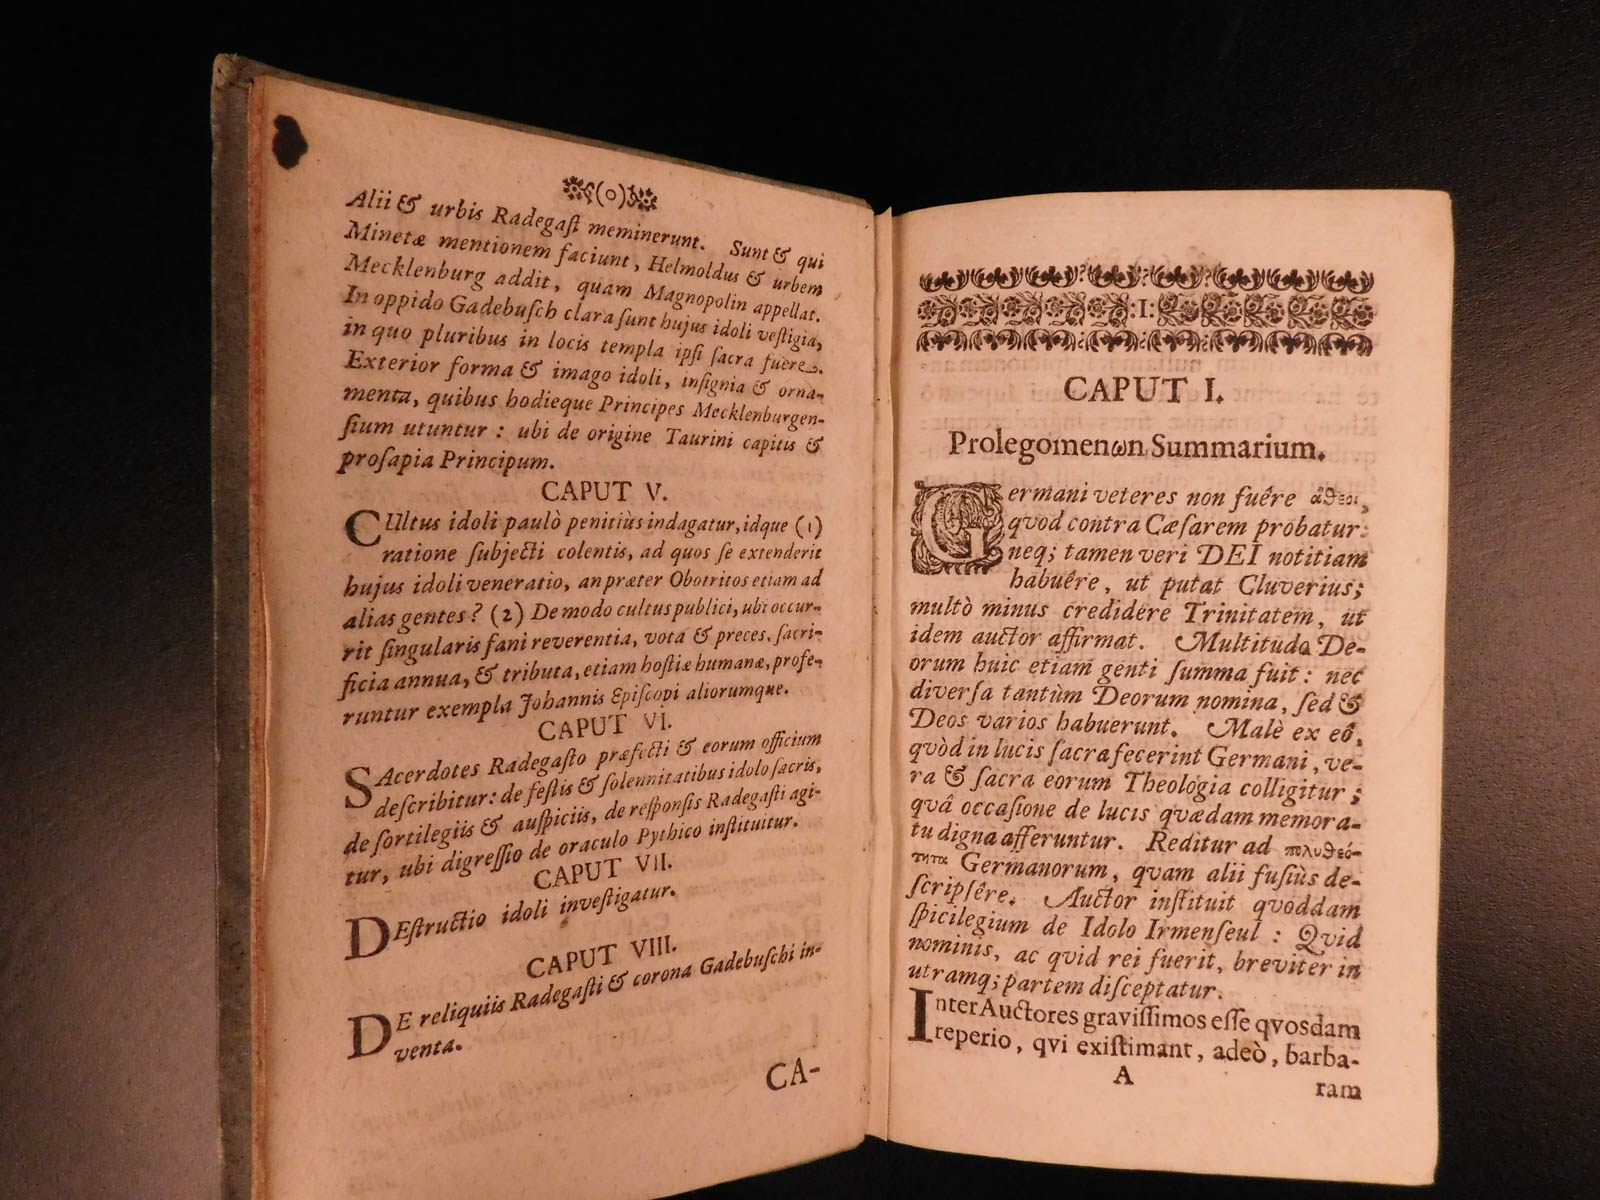 (o)
Alii & urbis Radegaſt meminerunt. Sunt & qui
Minetæ mentionem faciunt, Helmoldus & urbem
Mecklenburg addit, quam Magnopolin appellat.
In oppido Gadebuſch clara ſunt hujus idoli veſtigia,
in quo pluribus in locis templa ipſi ſacra fuere.
Exterior forma & imago idoli, inſignia & orna-
menta, quibus hodieque Principes Mecklenburgen-
ſium utuntur : ubi de origine Taurini capitis &
proſapia Principum.
CAPUT V.
CUltus idoli paulò penitiùs indagatur, idque (1)
ratione ſubjecti colentis, ad quos ſe extenderit
hujus idoli veneratio, an præter Obotritos etiam ad
alias gentes? (2) De modo cultus publici, ubi occur-
rit ſingularis fani reverentia, vota & preces, ſacri-
ficia annua, & tributa, etiam hoſtiæ humanæ, profe-
runtur exempla Johannis Epiſcopi aliorumque.
CAPUT VI.
SAcerdotes Radegaſto præfecti & eorum officium
deſcribitur: de feſtis & ſolennitatibus idolo ſacris,
de ſortilegiis & auſpiciis, de reſponſis Radegaſti agi-
tur, ubi digreſſio de oraculo Pythico inſtituitur.
CAPUT VII.
DEſtructio idoli inveſtigatur.
CAPUT VIII.
DE reliquiis Radegaſti & corona Gadebuſchi in-
venta.
CA-
:I:
CAPUT I.
Prolegomenωn Summarium.
Germani veteres non fuêre ἄθεοι,
quod contra Cæſarem probatur:
neq; tamen veri DEI notitiam
habuêre, ut putat Cluverius;
multò minus credidêre Trinitatem, ut
idem auctor affirmat. Multitudo De-
orum huic etiam genti ſumma fuit: nec
diverſa tantùm Deorum nomina, ſed &
Deos varios habuerunt. Malè ex eô,
quòd in lucis ſacra fecerint Germani, ve-
ra & ſacra eorum Theologia colligitur;
quâ occaſione de lucis quædam memora-
tu digna afferuntur. Reditur ad πολυθεό-
τητα Germanorum, quam alii fuſiùs de-
ſcripſêre. Auctor inſtituit quoddam
ſpicilegium de Idolo Irmenſeul : Quid
nominis, ac quid rei fuerit, breviter in
utramq; partem diſceptatur.
Inter Auctores graviſſimos eſſe qvosdam
reperio, qvi exiſtimant, adeò, barba-
A
ram